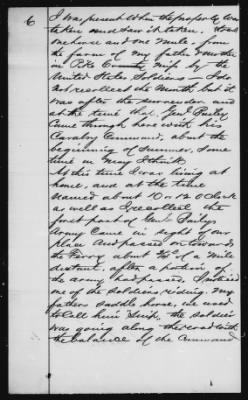 6
I was present when the property was
taken and saw it taken, it was
one horse and one mule, from
the farm of my father & mother
in Pike County Miss by the
United States Soldiers — I do
not recollect the month but it
was after the surrender and
at the time that Genl
came through with his
Cavalry Command, about the
beginning of summer, some
time in May I think
At this time I was living at
home, and at the time
named about 10 or 12 O Clock
as well as I recollect the
first part of Genl
Army came in sight of our
place and passed on towards
the Ferry about ¾ of a mile
distant, after a portion of
the army had passed, I noticed
one of the soldiers, riding my
fathers saddle horse, we used
to call him the soldier
was going along the road with
the balance of the command